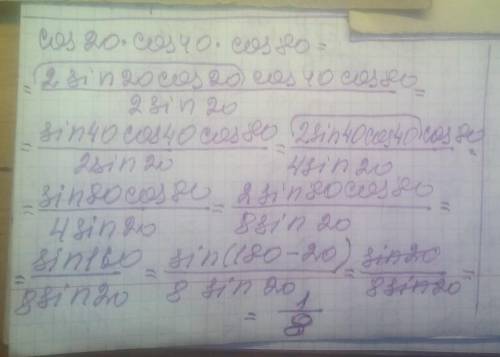 cos 20 · cos 40 · cos 80 =
= (2 sin 20 cos 20) cos 40 cos 80 / 2 sin 20 =
= sin 40 cos 40 cos 80 / 2 sin 20 = (2 sin 40 cos 40) cos 80 / 4 sin 20 =
= sin 80 cos 80 / 4 sin 20 = 2 sin 80 cos 80 / 8 sin 20 =
= sin 160 / 8 sin 20 = sin (180 - 20) / 8 sin 20 = sin 20 / 8 sin 20 =
= 1 / 8